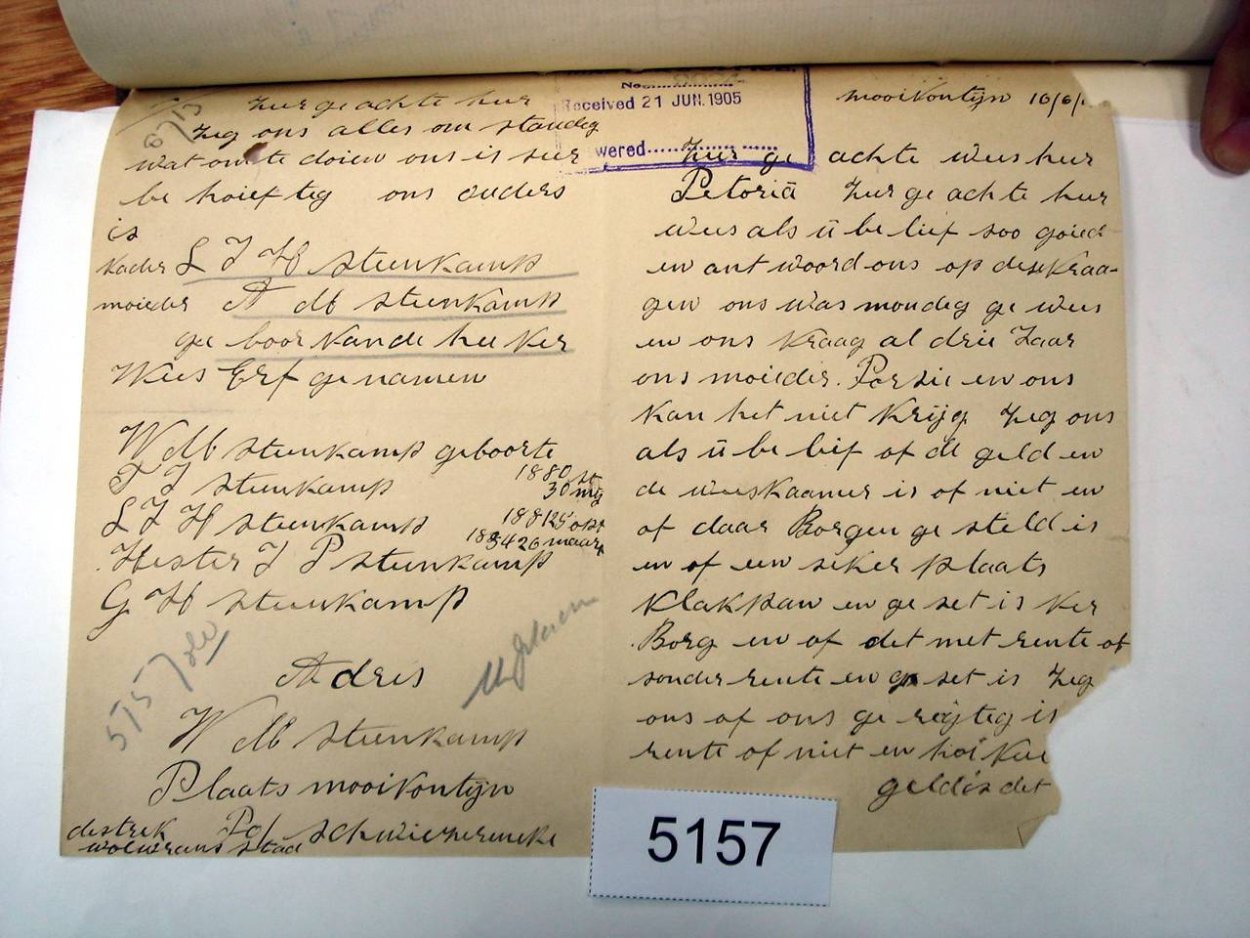 mooiVontijn 16/6/
Zeer ge achte wees heer
Petoria Zeer ge achte heer
wees als ū be lief soo goied
en ant woord ons op dese Kraa-
gen ons was mondeg ge wees
en ons Kraag al drie Zaar
ons moieder. Porsie en ons
kan het niet Krijg Zeg ons
als ū be lief of de geld en
de weeskaamer is of niet en
of daar Borgen ge steld is
en of een seker plaats
Klakpan en ge set is Ver
Borg en of det met rente of
sonder rente en ge set is Zeg
ons of ons ge regteg is
rente of niet en hoi Vee
geld is det
Zeer ge achte heer
Zeg ons alles om standeg
wat om te doien ons is seer
be hoief teg ons ouders
is
Vader L J H Steenkamp
moieder A M Steenkamp
ge boor Van de hee Ver
Wees Erf ge namen
W M Steenkamp geboorte
1880
J J Steenkamp 30 mg
L J H Steenkamp 1881 25 okt
Hester J P Steenkamp 1884 26 maart
G H Steenkamp
Adres
W M Steenkamp
Plaats mooiVontijn
destrek Pos schwiezereneke
wolmrans stad
No.
Received 21 JUN. 1905
wered
5157